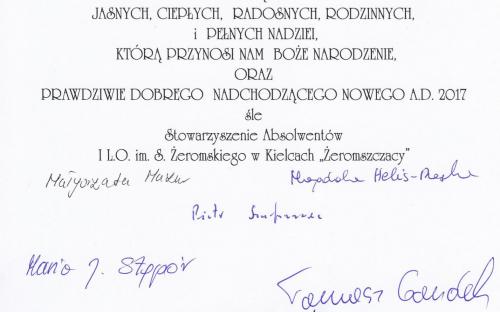 JASNYCH, CIEPŁYCH, RADOSNYCH, RODZINNYCH,
i PEŁNYCH NADZIEI,
KTÓRĄ PRZYNOSI NAM BOŻE NARODZENIE,
ORAZ
PRAWDZIWIE DOBREGO NADCHODZĄCEGO NOWEGO A.D. 2017
śle
Stowarzyszenie Absolwentów
I L.O. im. S. Żeromskiego w Kielcach „Żeromszczacy”
Małgorzata Mazur Magdalena Helis-
Piotr
J. Stępór
Tomasz